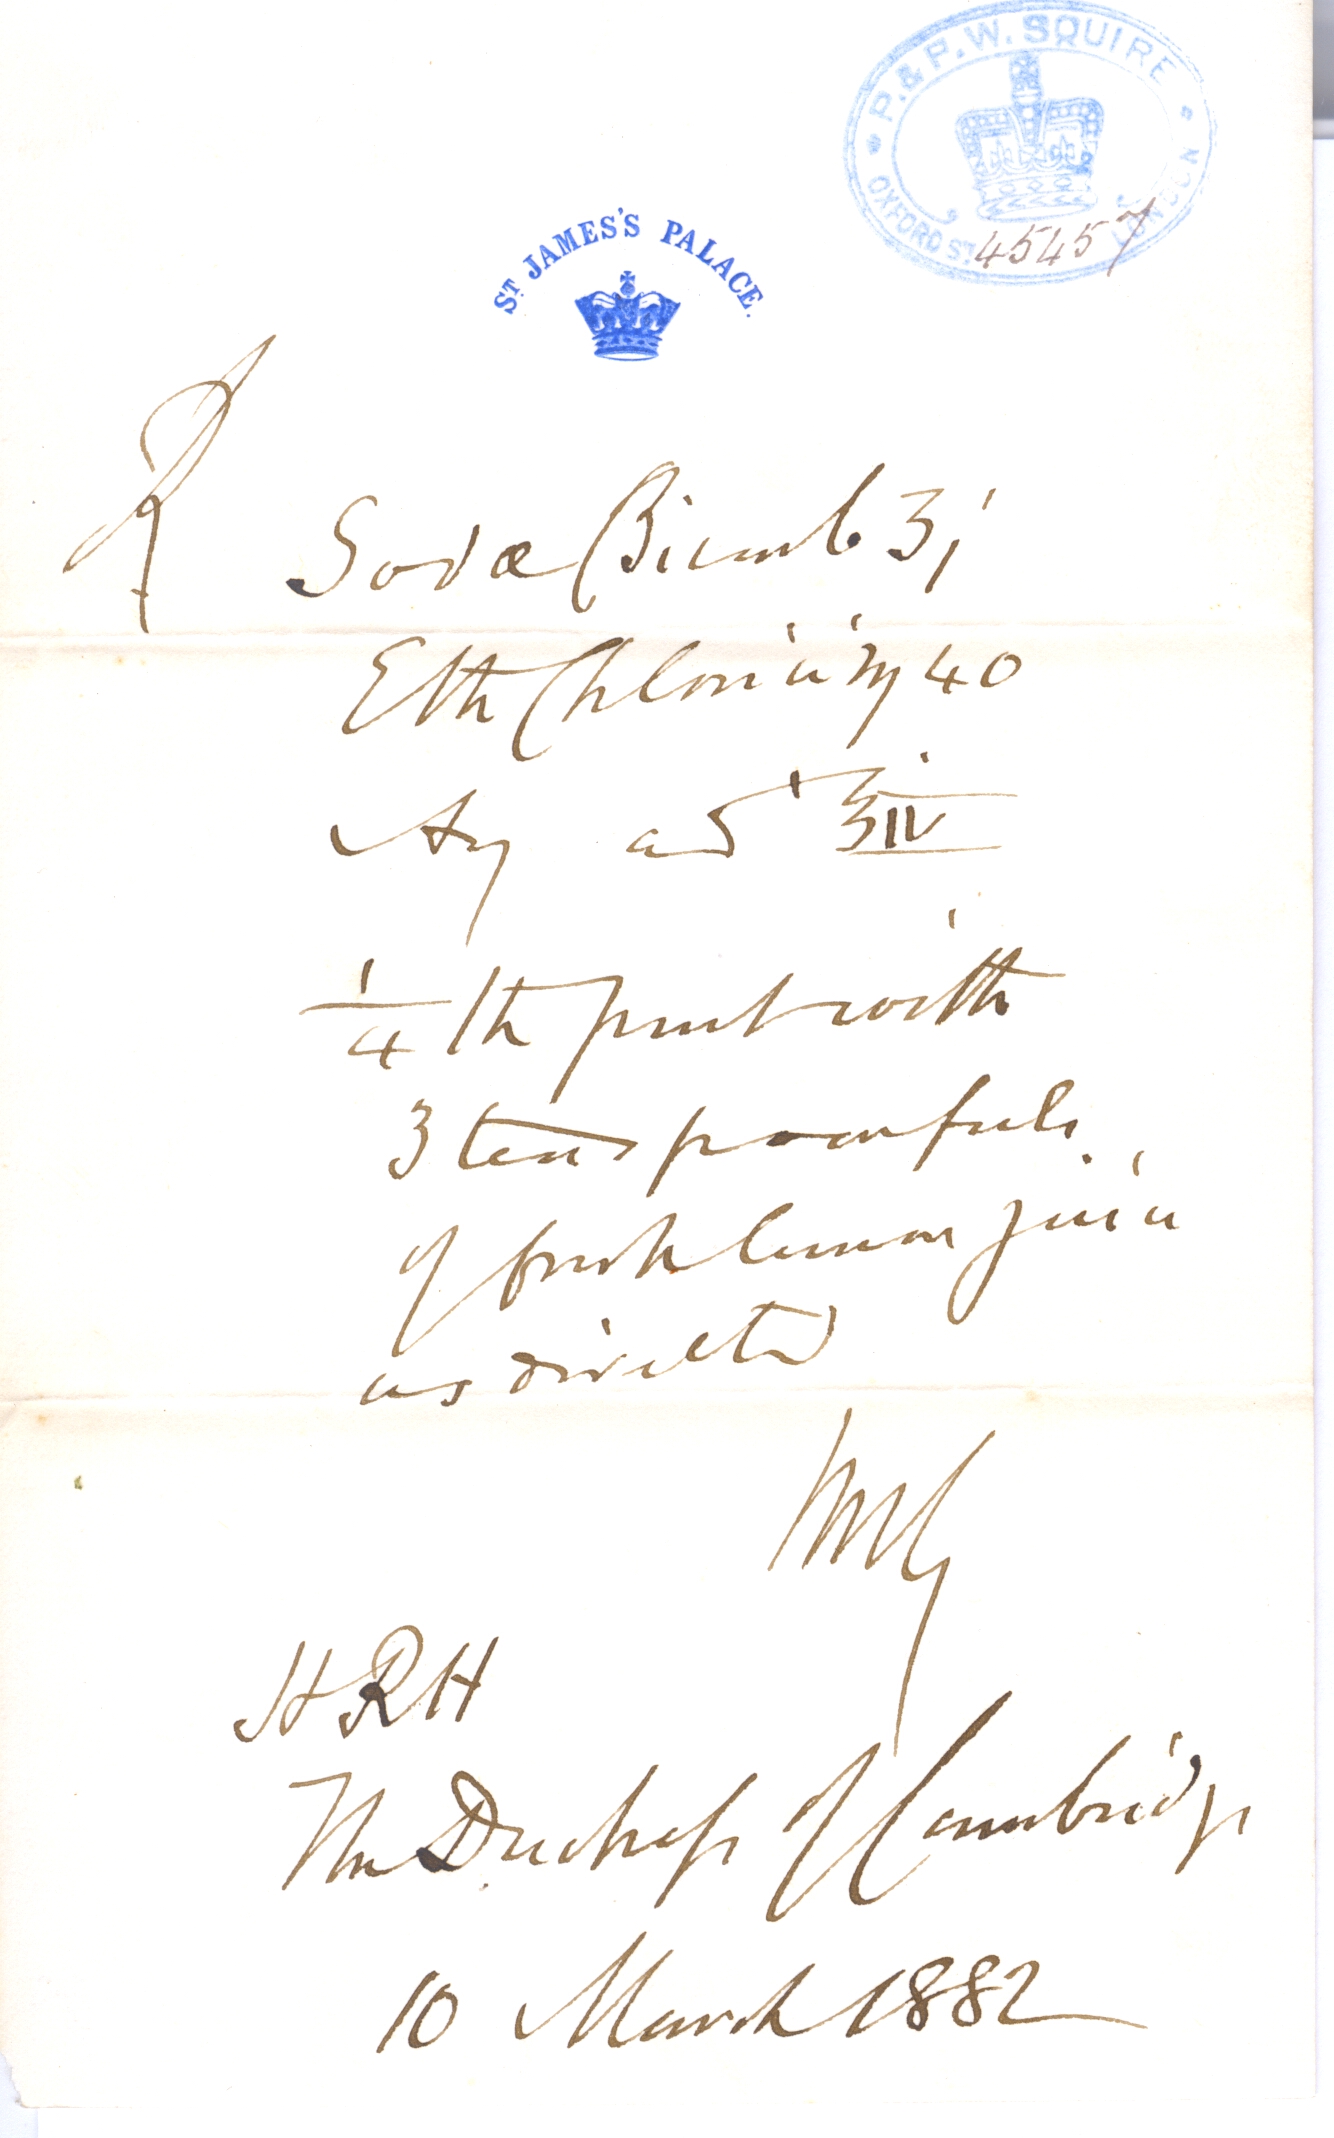 P. & P. W. SQUIRE
OXFORD ST. LONDON
45457
ST JAMES'S PALACE.
℞
Sodæ Bicarb ʒj
Eth Chlorici ♏ 40
Aq ad ℥iv
1/4 th part with
3 teaspoonfuls
of fresh lemon juice
as directed
HRH
The Duchess of Cambridge
10 March 1882